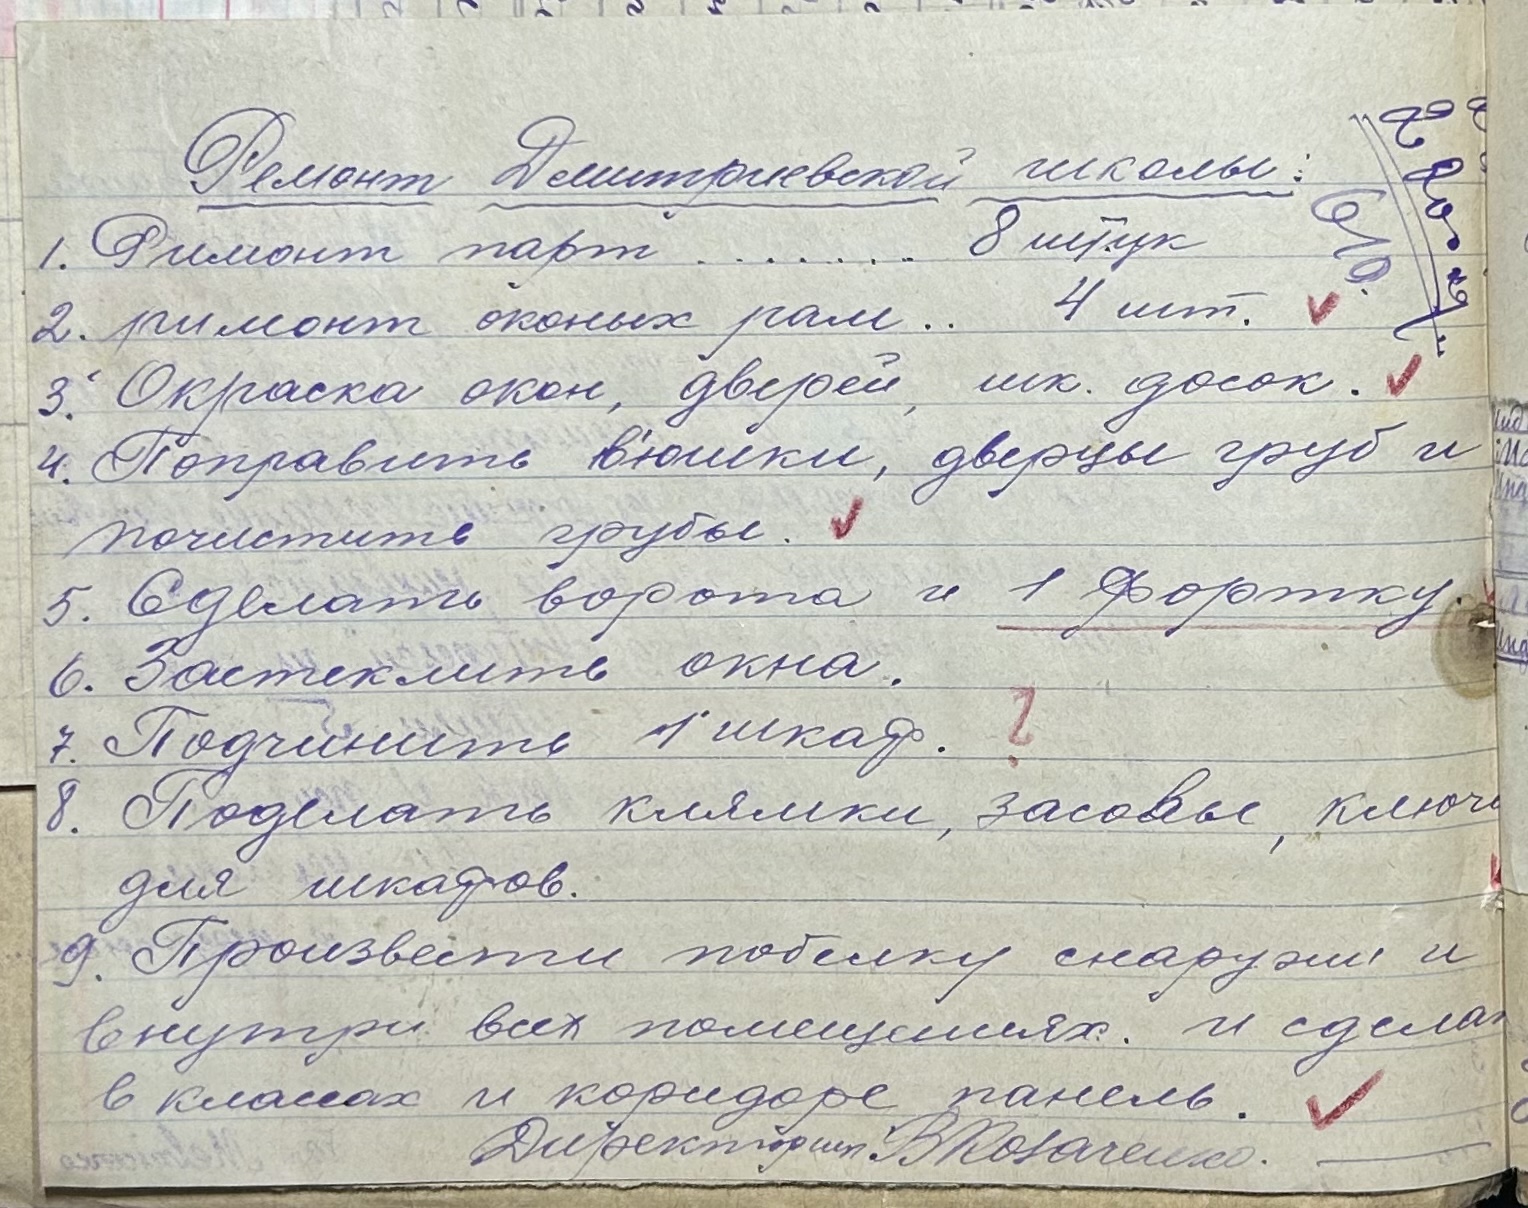 Ремонт Дмитриевской школы:
1. Римонт парт ........ 8 штук
2. римонт оконых рам .. 4 шт.
3. Окраска окон, дверей, шк. досок.
4. Поправить в'юшки, дверцы груб и
почистить грубы.
5. Сделать ворота и 1 фортку.
6. Застеклить окна.
7. Подчинить 1 шкаф. ?
8. Поделать клямки, засовы, ключи
для шкафов.
9. Произвести побелку снаружи и
внутри всех помещениях. и сдела
в класах и коридоре панель.
Директор шк. В Козаченко.